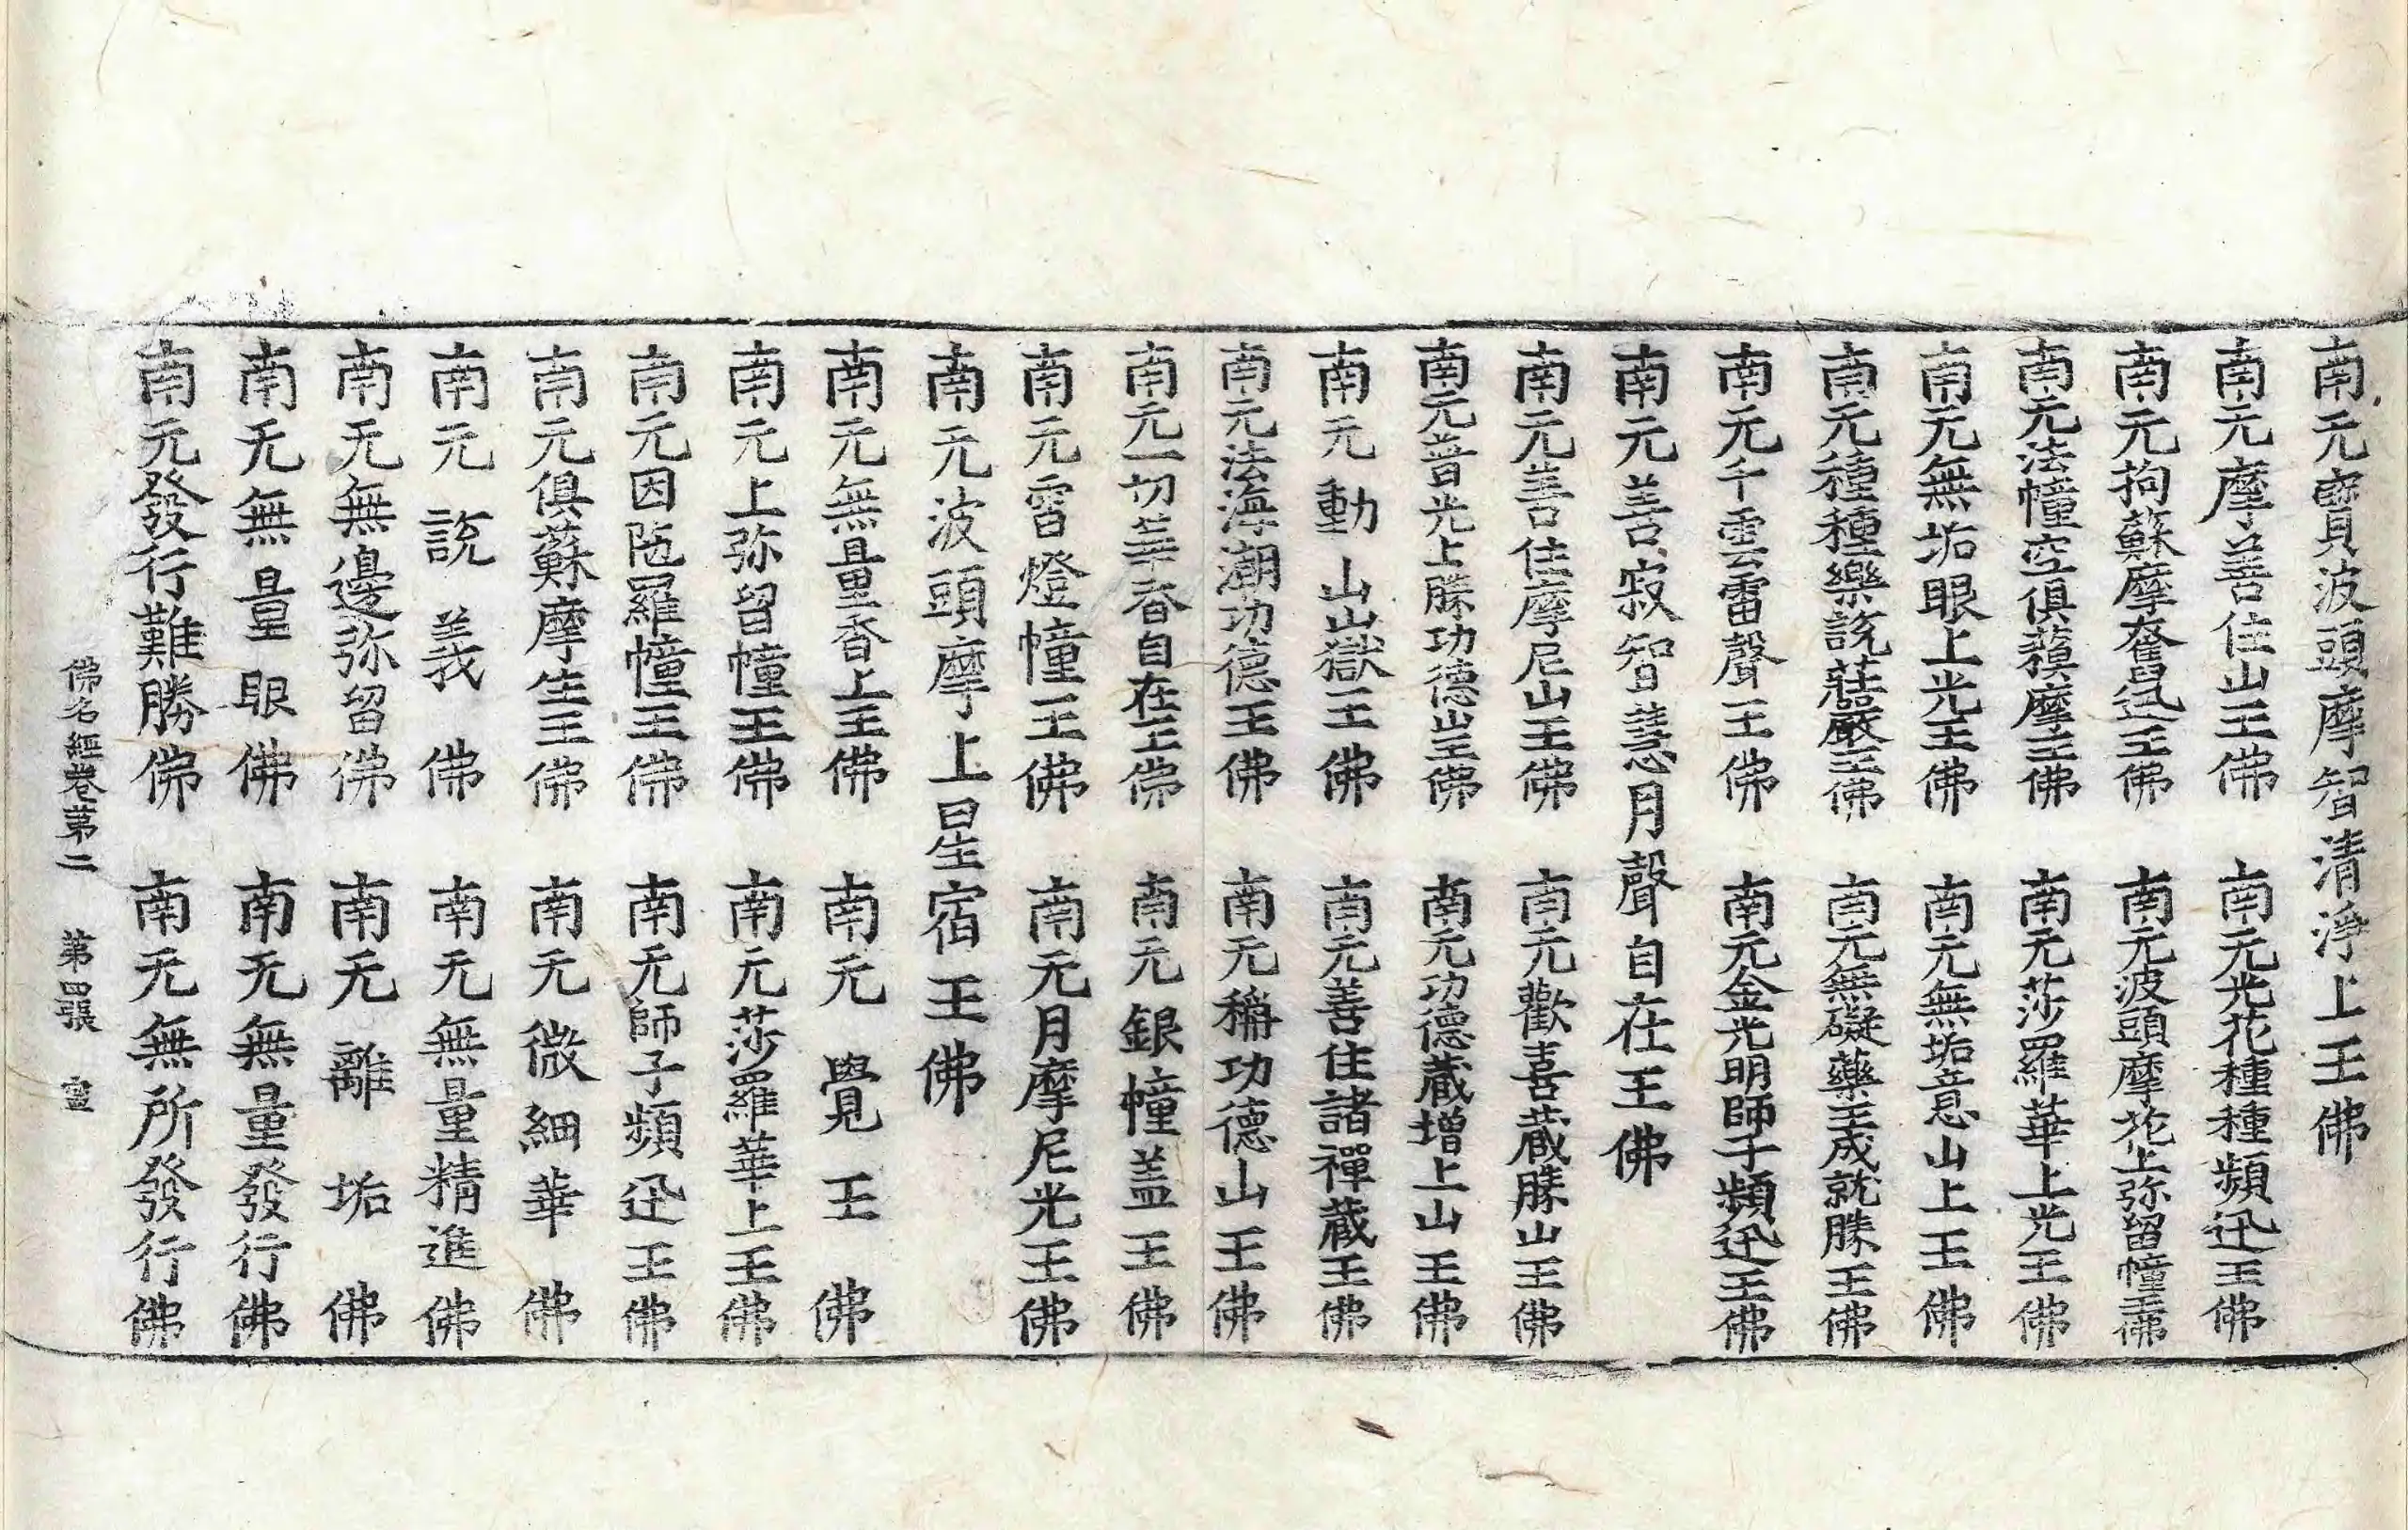 南无寶波頭摩智清淨上王佛
南无摩善住山王佛　南无光花種種頻迅王佛
南无拘蘇摩奮迅王佛　南无波頭摩花上弥留幢王佛
南无法幢空俱蘓摩王佛　南无莎羅華上光王佛
南无無垢眼上光王佛　南无無垢意山上王佛
南无種種樂說莊嚴王佛　南无無礙藥王成就勝王佛
南无千雲雷聲王佛　南无金光明師子頻迅王佛
南无善寂智慧月聲自在王佛
南无善住摩尼山王佛　南无歡喜蔵勝山王佛
南无普光上勝功德山王佛　南无功德蔵增上山王佛
南无動山嶽王佛　南无善住諸禪蔵王佛
南无法海潮功德王佛　南无稱功德山王佛
南无一切華香自在王佛　南无銀幢盖王佛
南无雷燈幢王佛　南无月摩尼光王佛
南无波頭摩上星宿王佛
南无無量香上王佛　南无覺王佛
南无上弥留幢王佛　南无莎羅華上王佛
南无因陁羅幢王佛　南无師子頻迅王佛
南无俱蘇摩生王佛　南无微細華佛
南无說義佛　南无無量精進佛
南无無邊弥留佛　南无離垢佛
南无無量眼佛　南无無量發行佛
南无發行難勝佛　南无無所發行佛
佛名經卷第二　第四張